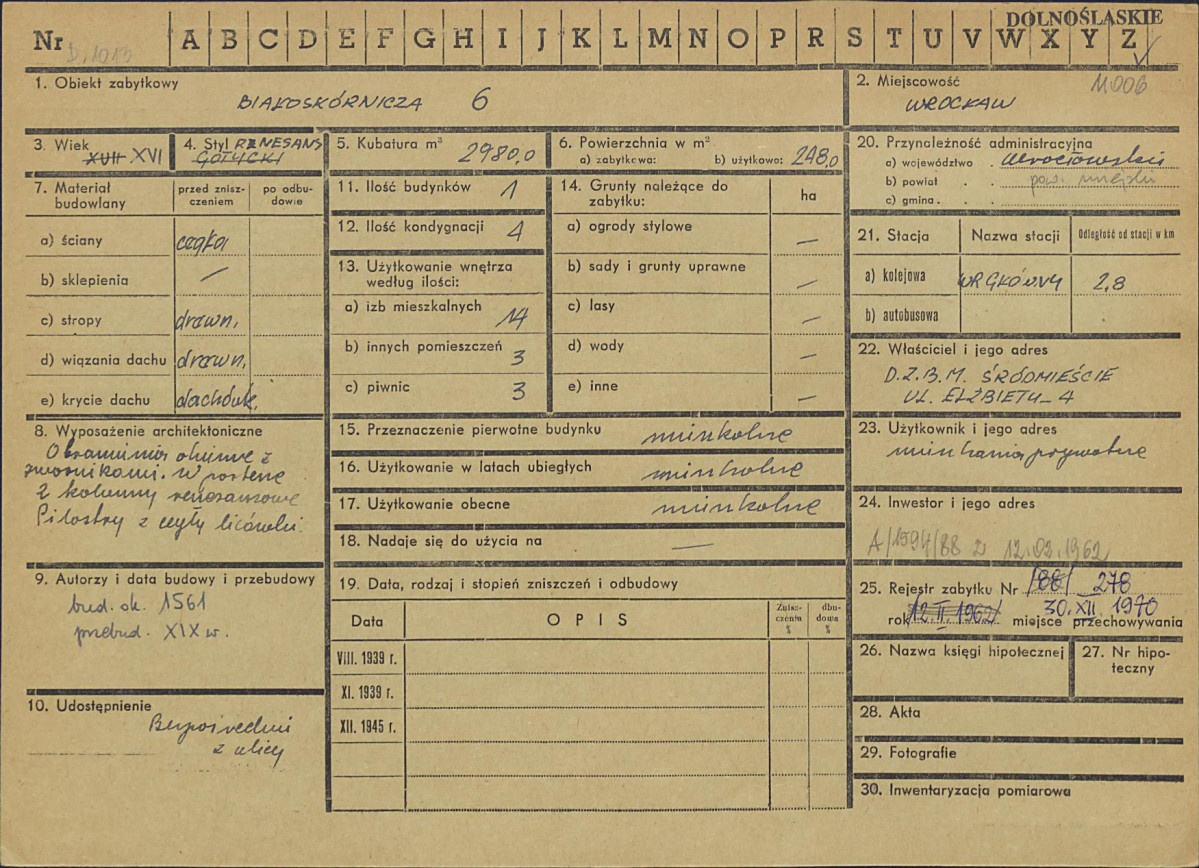 DOLNOŚLĄSKIE
Nr D.1013 A B C D E F G H I J K L M N O P R S T U V W X Y Z
1. Obiekt zabytkowy
BIAŁOSKÓRNICZA 6
2. Miejscowość
11.006
WROCŁAW
3. Wiek
XVII XVI
4. Styl RENESANS
GOTYCKI
5. Kubatura m³
2980,0
6. Powierzchnia w m²
a) zabytkowa: b) użytkowa: 248,0
7. Materiał budowlany
przed zniszczeniem
po odbudowie
a) ściany cegła
b) sklepienia —
c) stropy drewn.
d) wiązania dachu drewn.
e) krycie dachu dachówk.
8. Wyposażenie architektoniczne
Obramienia okienne z
zwornikami. W portene
2 kolumny renesansowe
Pilastry z cegły licówki.
9. Autorzy i data budowy i przebudowy
bud. ok. 1561
przebud. XIX w.
10. Udostępnienie
Bezpośredni
z ulicy
11. Ilość budynków 1
12. Ilość kondygnacji 4
13. Użytkowanie wnętrza
według ilości:
a) izb mieszkalnych 14
b) innych pomieszczeń 3
c) piwnic 3
14. Grunty należące do
zabytku:
ha
a) ogrody stylowe —
b) sady i grunty uprawne —
c) lasy —
d) wody —
e) inne —
15. Przeznaczenie pierwotne budynku mieszkalne
16. Użytkowanie w latach ubiegłych mieszkalne
17. Użytkowanie obecne mieszkalne
18. Nadaje się do użycia na —
19. Data, rodzaj i stopień zniszczeń i odbudowy
Data
OPIS
Zniszczenia %
dbudowa %
VIII. 1939 r.
XI. 1939 r.
XII. 1945 r.
20. Przynależność administracyjna
a) województwo . wrocławskie
b) powiat . . pow. miejski
c) gmina . . .
21. Stacja
Nazwa stacji
Odległość od stacji w km
a) kolejowa WR GŁÓWNY 2,8
b) autobusowa
22. Właściciel i jego adres
D.Z.B.M. ŚRÓDMIEŚCIE
UL. ELŻBIETY 4
23. Użytkownik i jego adres
mieszkania prywatne
24. Inwestor i jego adres
A/1594/88 z 12.02.1962
25. Rejestr zabytku Nr /88/ 278
rok /12.II.1962/ 30.XII.1970
miejsce przechowywania
26. Nazwa księgi hipotecznej
27. Nr hipoteczny
28. Akta
29. Fotografie
30. Inwentaryzacja pomiarowa